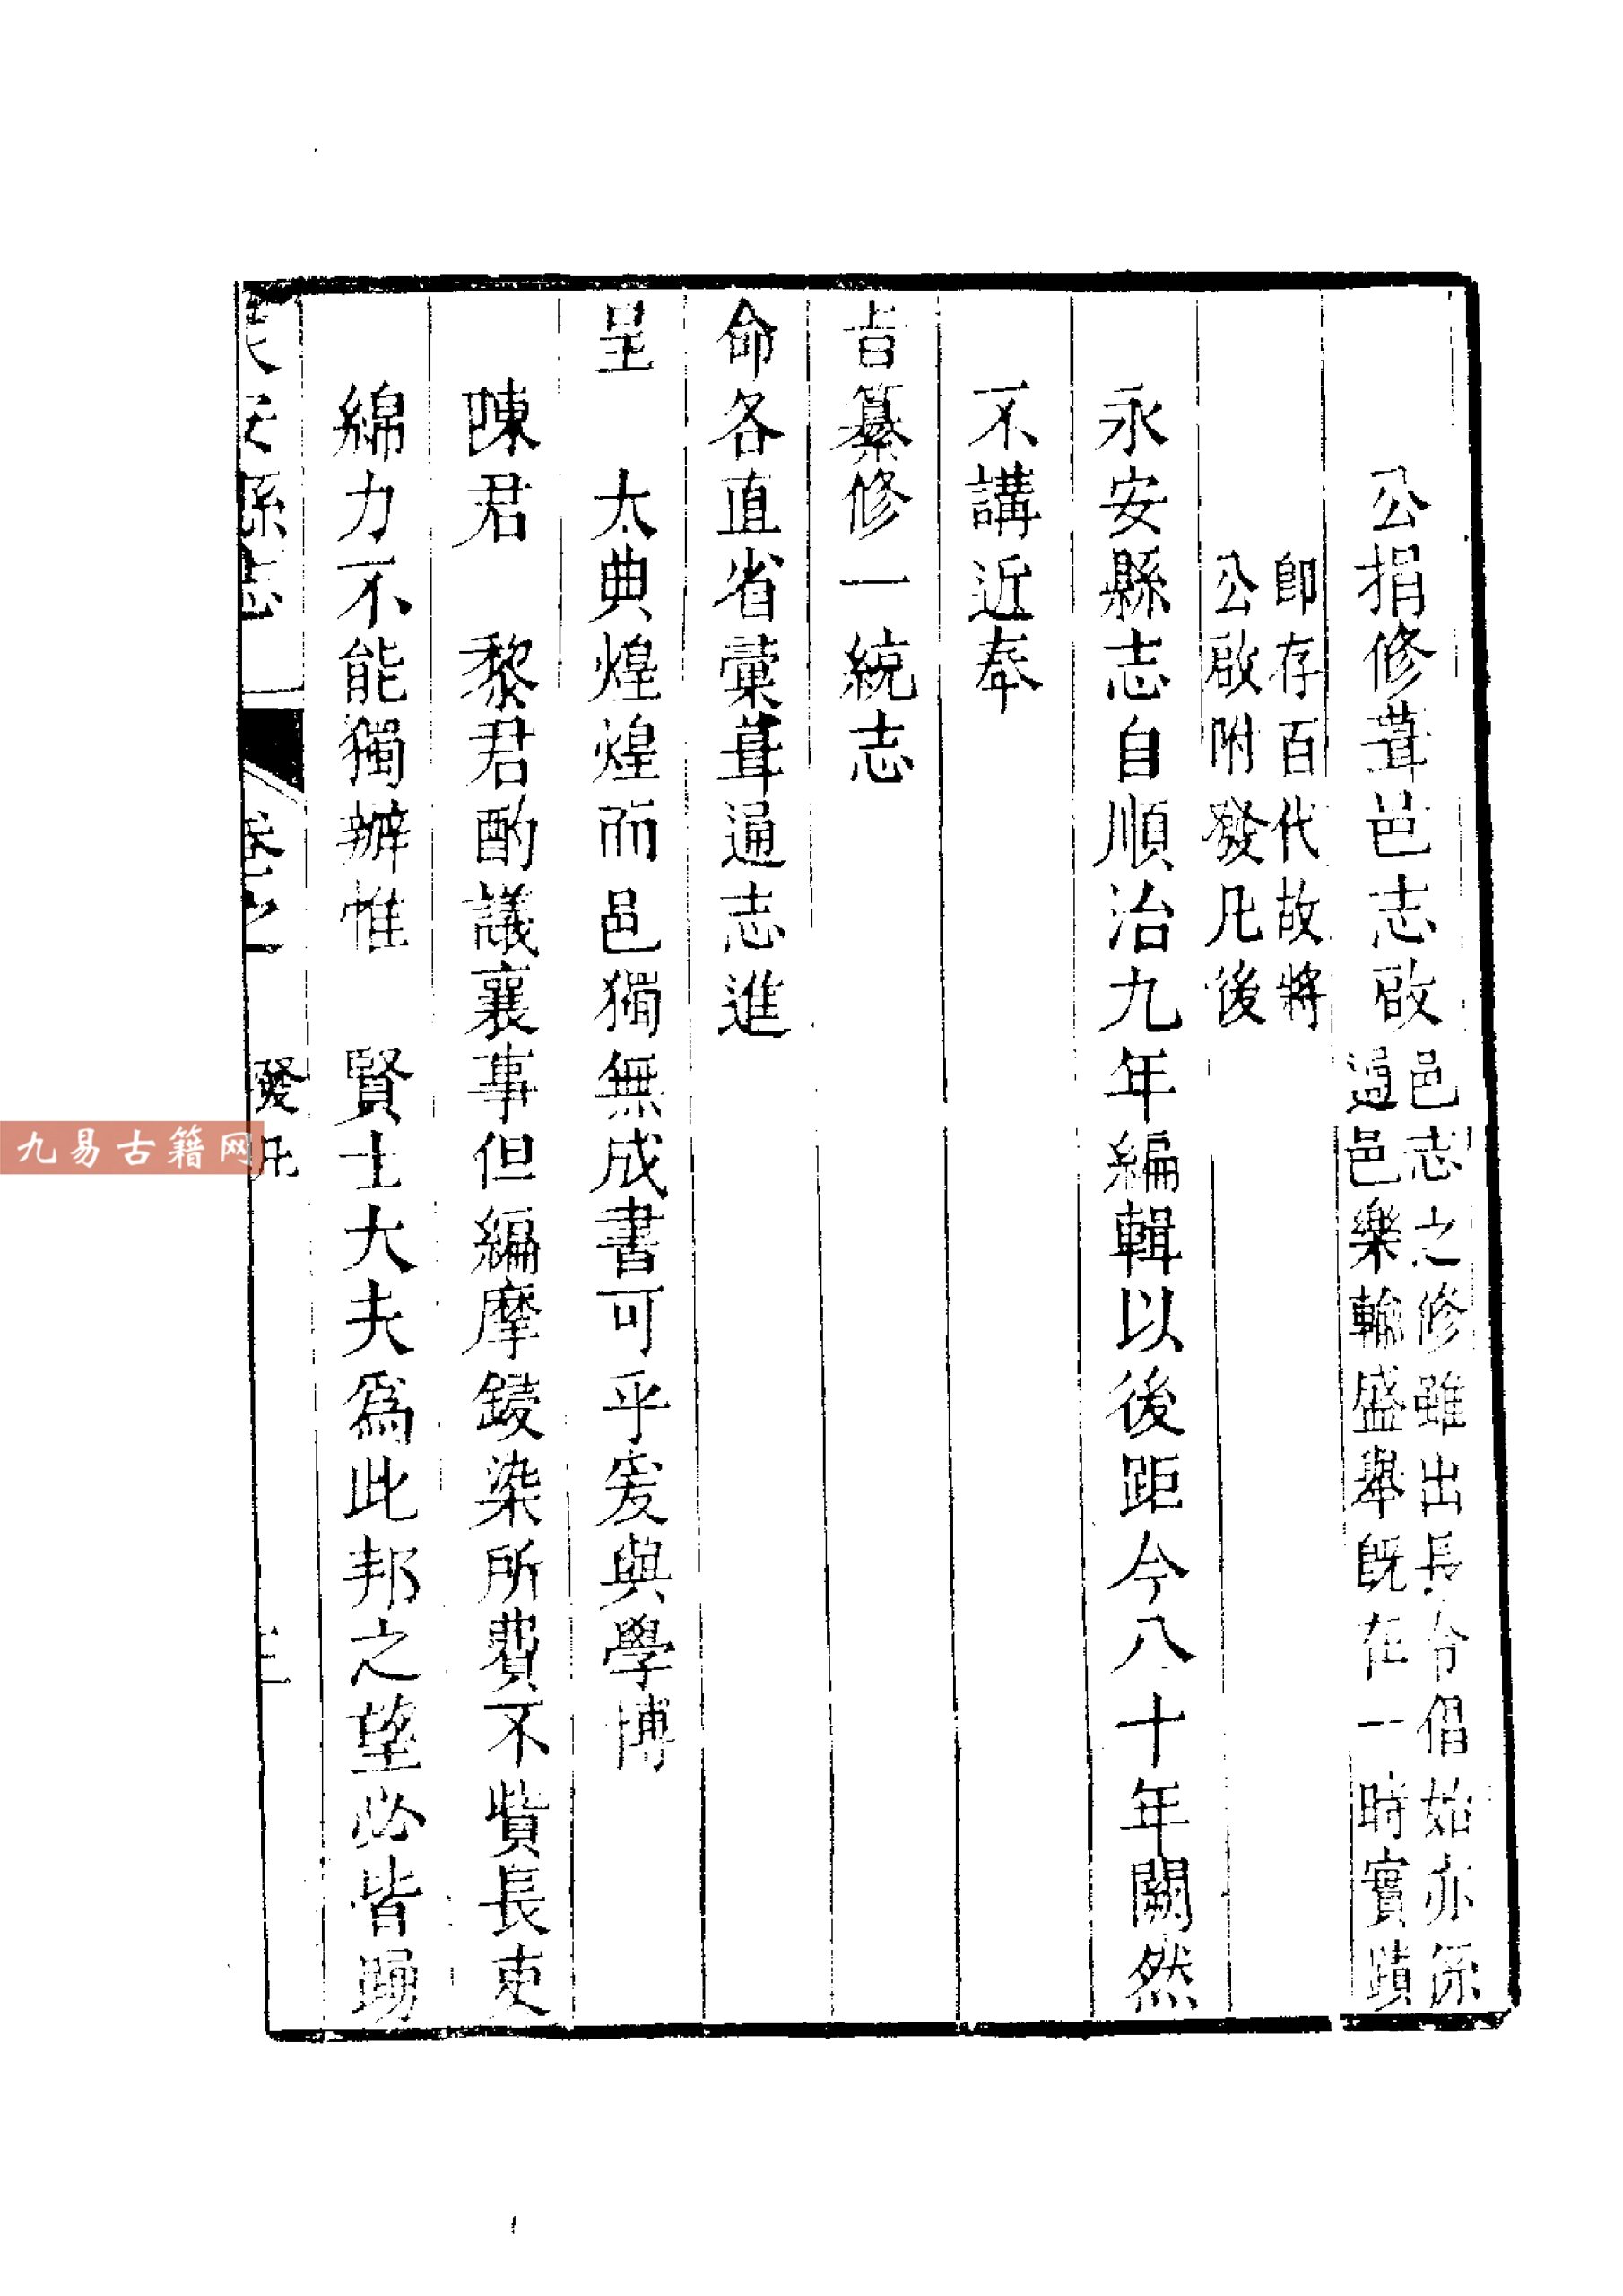 公捐修葺邑志啟邑志之修雖出長令倡始亦係
通邑樂輸盛舉旣在一時實蹟
卽存百代故將
公啟附發凡後
永安縣志自順治九年編輯以後距今八十年闕然
不講近奉
旨纂修一統志
命各直省彙葺通志進
呈　太典煌煌而邑獨無成書可乎爰與學博
陳君　黎君酌議襄事但編摩鋟染所費不貲長吏
綿力不能獨辦惟　賢士大夫爲此邦之望必皆踴
永安縣志　卷之　發凡　三
九易古籍网